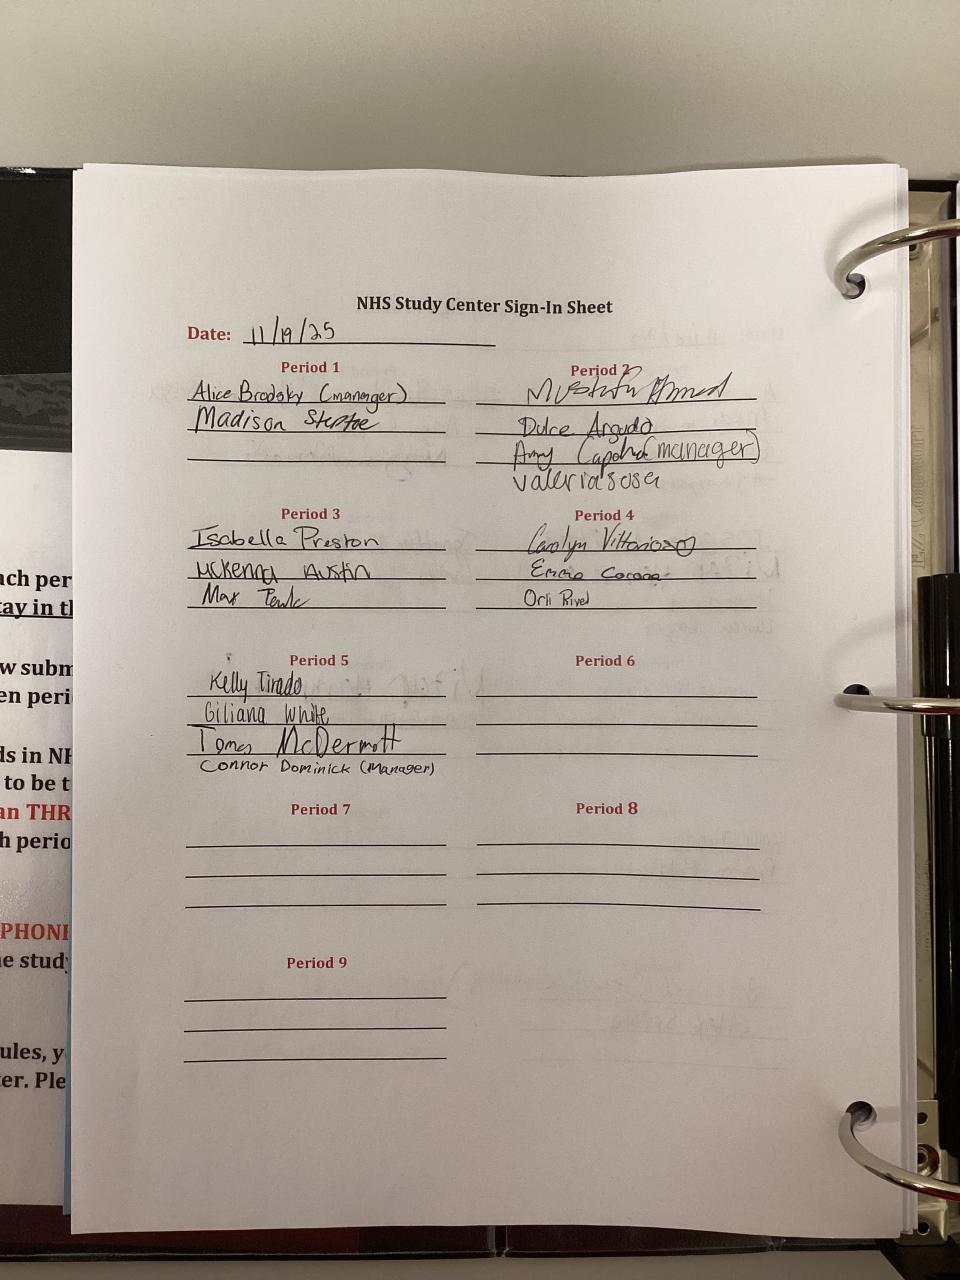 NHS Study Center Sign-In Sheet
Date: 11/19/25
Period 1
Alice Brodsky (manager)
Madison Steptoe
Period 2
Mustafa Ahmed
Dulce Argudo
Amy (manager)
valeria sosa
Period 3
Isabella Preston
McKenna Austin
Max
Period 4
Carolyn Vittorioso
Emma Corona
Orli
Period 5
Kelly Tirado
Giliana White
Tomas McDermott
Connor Dominick (Manager)
Period 6
Period 7
Period 8
Period 9
ach per
tay in tl
w subm
en peri
ds in NH
to be t
an THR
h perio
PHONE
e stud
ules, y
er. Ple